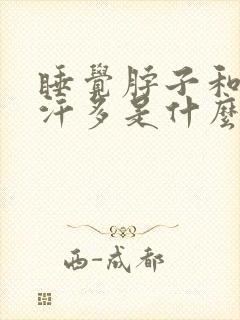 睡覺脖子和
汗多是什麼
西-成都